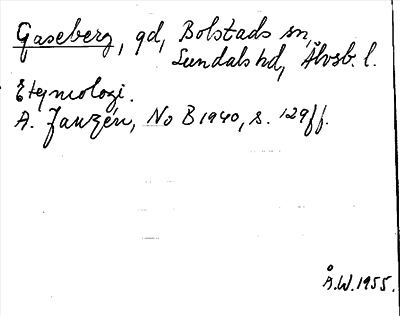 Gaseberg, gd, Bolstads sn,
Sundals hd, Älvsb. l.
Etymologi.
A. Janzén, No B 1940, s. 129 ff.
Å.W. 1955.